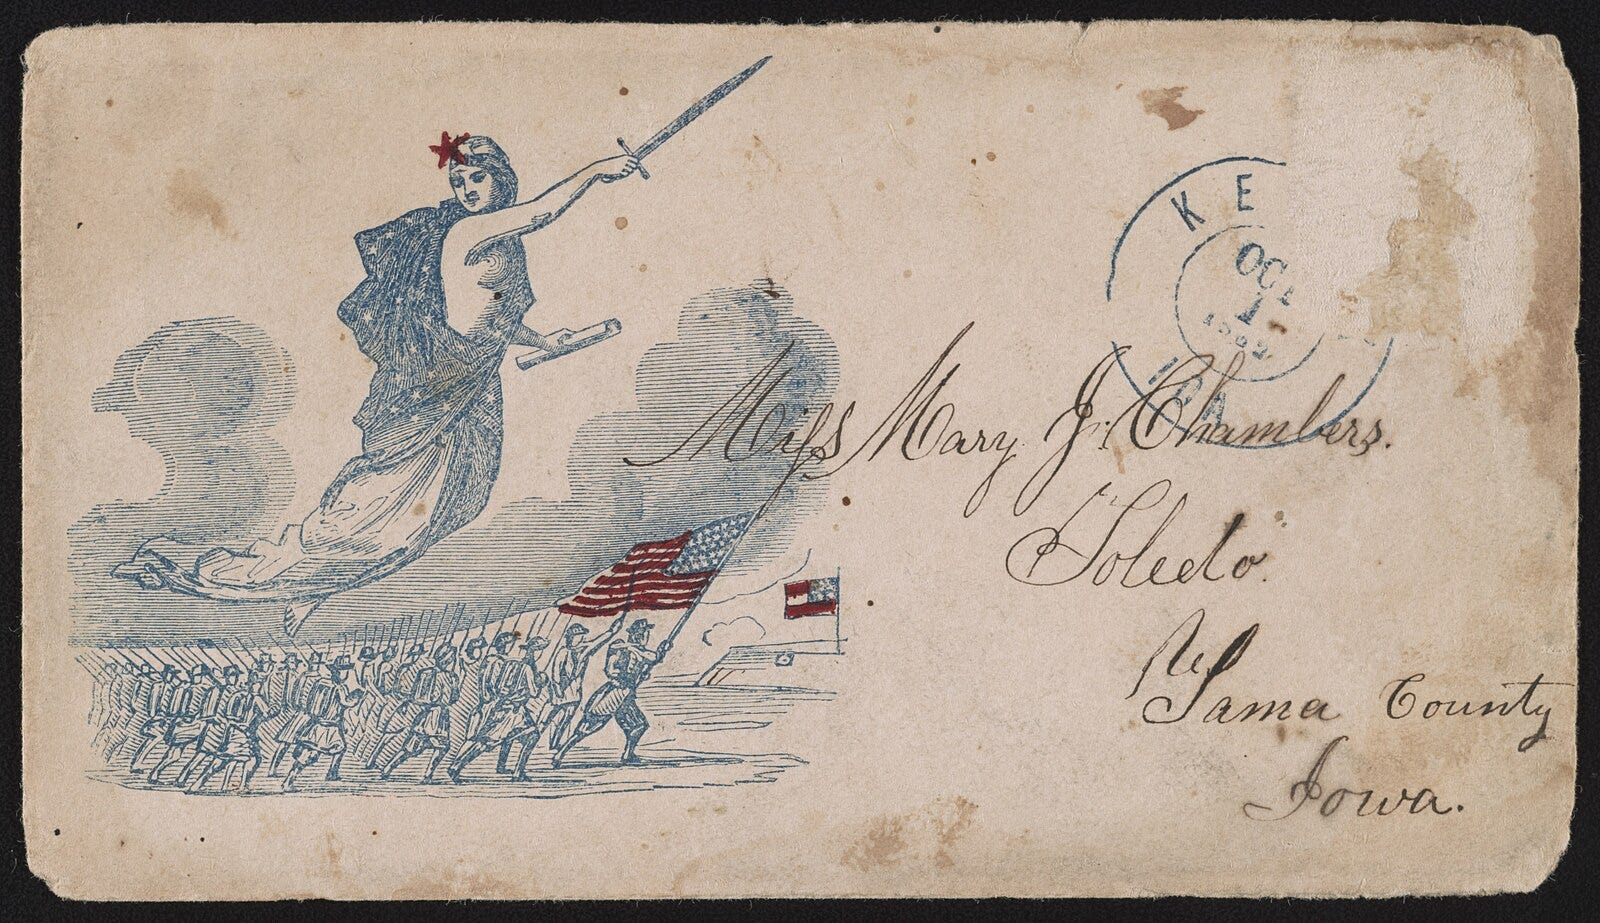 KE
OCT
1
1862
IOA
Miss Mary J. Chambers.
Toledo
Tama County
Iowa.